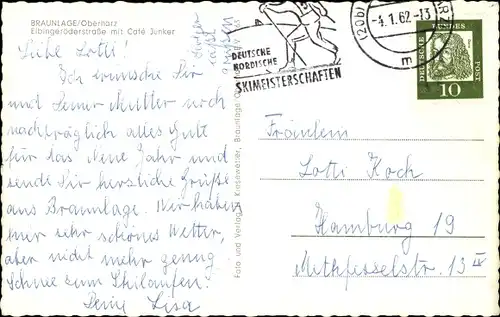 BRAUNLAGE/Oberharz
Elbingeröderstraße mit Café Junker
Liebe Lotti!
Ich wünsche Dir
und Deiner Mutter noch
nachträglich alles Gute
für das Neue Jahr und
sende Dir herzliche Grüße
aus Braunlage. Wir haben
hier sehr schönes Wetter,
aber nicht mehr genug
Schnee zum Skilaufen!
Deine Lisa
Foto und Verlag R. Kindewetter, Braunlage
DEUTSCHE
NORDISCHE
SKIMEISTERSCHAFTEN
(20b)
-4.1.62-13
m
DEUTSCHE
BUNDESPOST
10
Fräulein
Lotti Koch
Hamburg 19
Methfesselstr. 13 IV